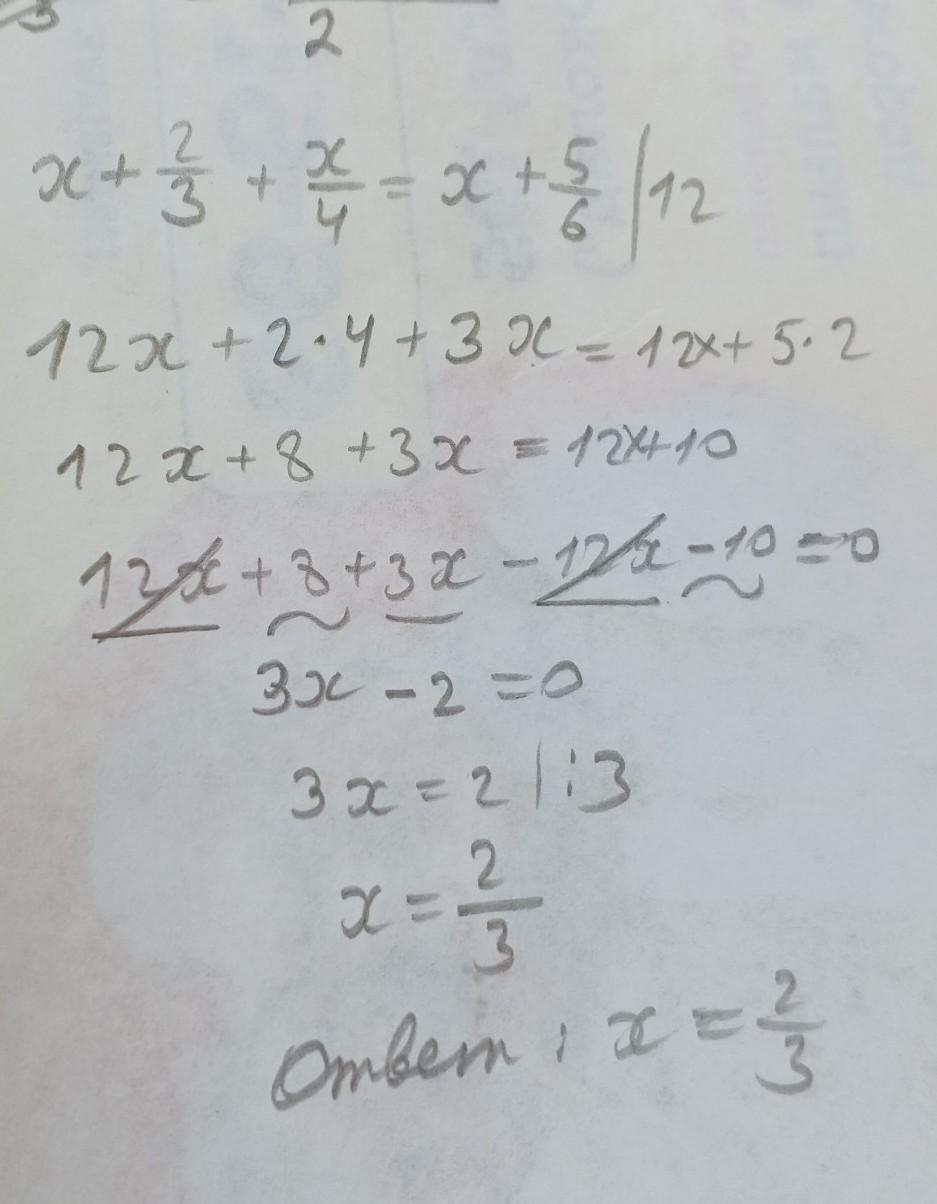 2
x + 2/3 + x/4 = x + 5/6 | 12
12x + 2·4 + 3x = 12x + 5·2
12x + 8 + 3x = 12x+10
12x + 8 + 3x - 12x - 10 = 0
3x - 2 = 0
3x = 2 | :3
x = 2/3
Ответ: x = 2/3